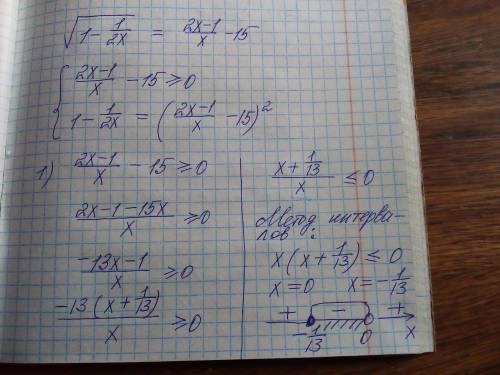 √(1 - 1/2x) = (2x-1)/x - 15
{ (2x-1)/x - 15 ≥ 0
1 - 1/2x = ((2x-1)/x - 15)²
1) (2x-1)/x - 15 ≥ 0
(2x-1-15x)/x ≥ 0
(-13x-1)/x ≥ 0
(-13(x + 1/13))/x ≥ 0
(x + 1/13)/x ≤ 0
Метод интерва-
лов:
x(x + 1/13) ≤ 0
x=0 x=-1/13
+ - +
-1/13 0 x